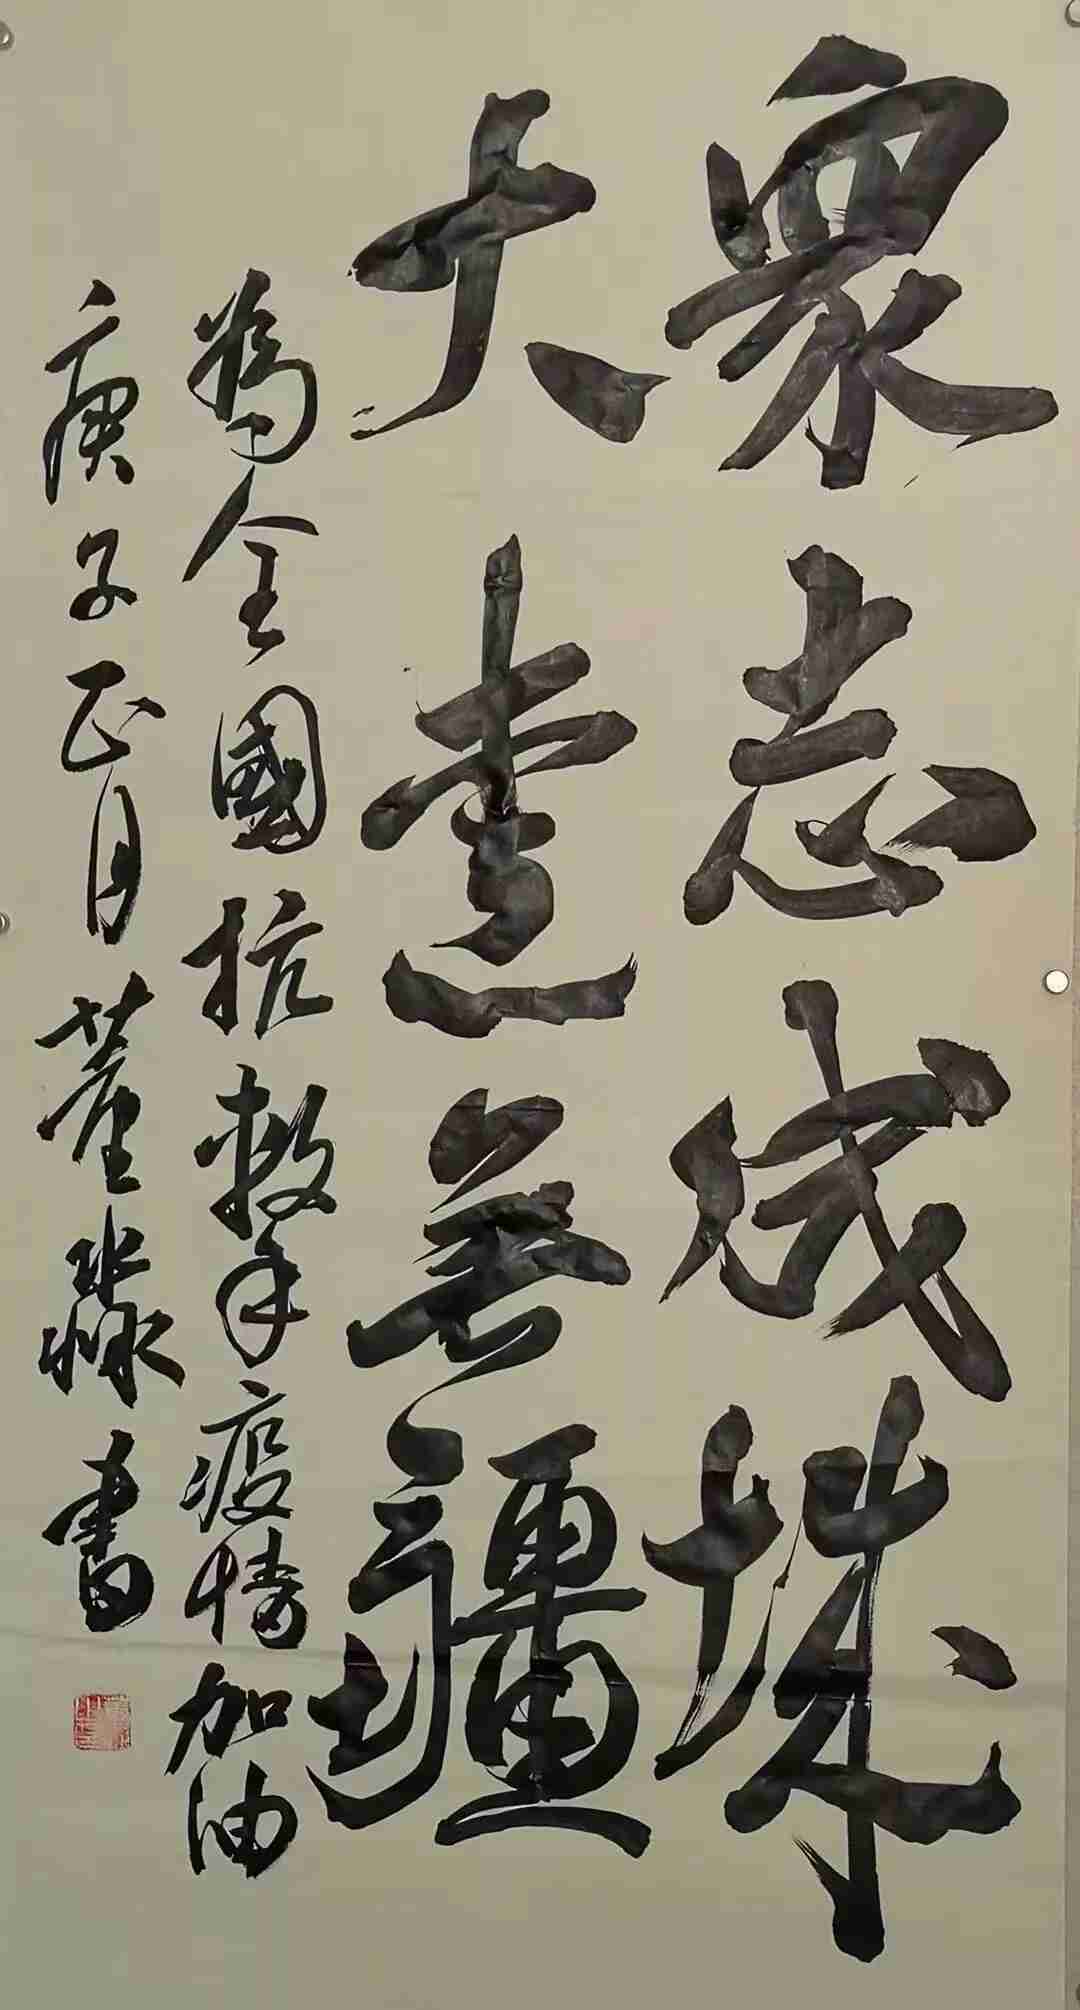 眾志成城
大愛無疆
為全國抗擊疫情加油
庚子正月董淼書